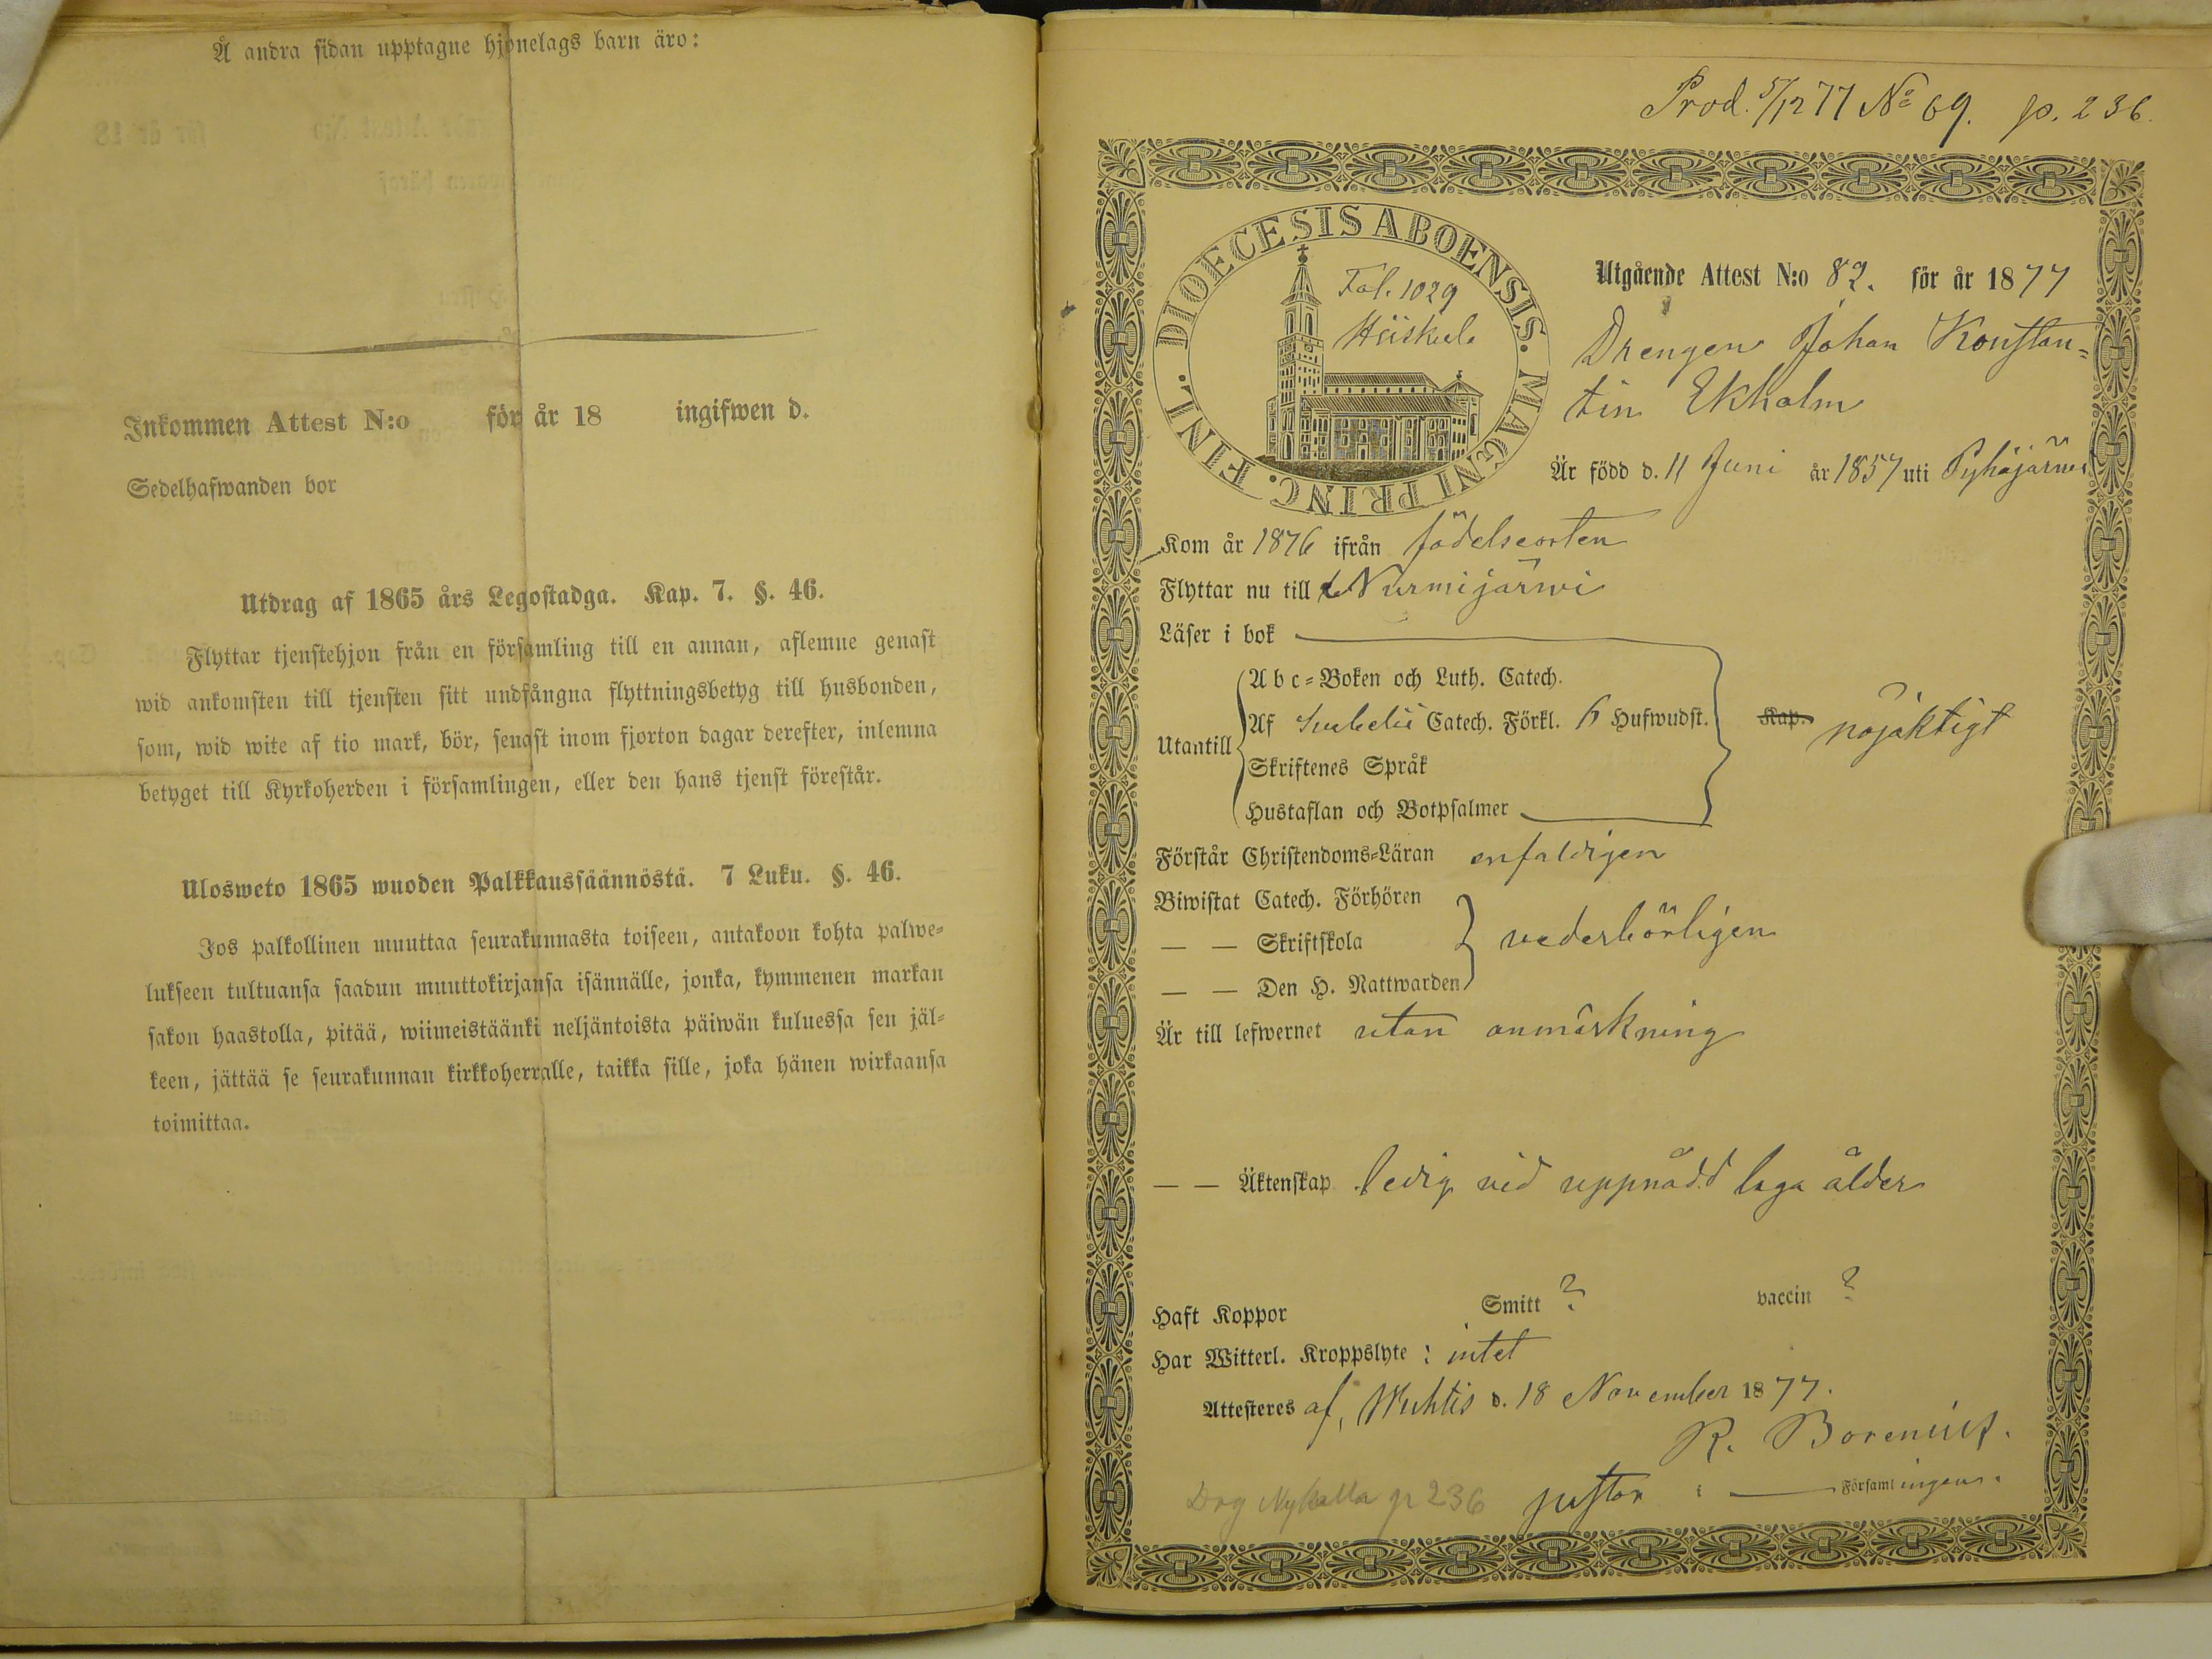 Å andra sidan upptagne hjonelags barn äro:
Inkommen Attest N:o för år 18 ingifwen d.
Sedelhafwanden bor
Utdrag af 1865 års Legostadga. Kap. 7. §. 46.
Flyttar tjenstehjon från en församling till en annan, aflemne genast
wid ankomsten till tjensten sitt undfångna flyttningsbetyg till husbonden,
som, wid wite af tio mark, bör, senast inom fjorton dagar derefter, inlemna
betyget till Kyrkoherden i församlingen, eller den hans tjenst förestår.
Ulosweto 1865 wuoden Palkkaussäännöstä. 7 Luku. §. 46.
Jos palkollinen muuttaa seurakunnasta toiseen, antakoon kohta palwe-
lukseen tultuansa saadun muuttokirjansa isännälle, jonka, kymmenen markan
sakon haastolla, pitää, wiimeistäänki neljäntoista päiwän kuluessa sen jäl-
keen, jättää se seurakunnan kirkkoherralle, taikka sille, joka hänen wirkaansa
toimittaa.
Prod. 5/12 77 No 69. p. 236.
DIOECESIS ABOENSIS. MAGNI PRINC. FINL.
Fol. 1029
Utgående Attest N:o 82. för år 1877
Drengen Johan Konstan=
tin Ekholm
Är född d. 11 Juni år 1857 uti Pyhäjärvi
Kom år 1876 ifrån födelseorten
Flyttar nu till Nurmijärwi
Läser i bok
Abc=Boken och Luth. Catech.
Utantill Af Catech. Förkl. 6 Hufwudst. Kap. nöjaktigt
Skriftenes Språk
Hustaflan och Botpsalmer
Förstår Christendoms=Läran enfaldigen
Biwistat Catech. Förhören
— — Skriftskola vederbörligen
— — Den H. Nattwarden
Är till lefwernet utan anmärkning
— — Äktenskap ledig vid uppnådd laga ålder
Haft Koppor Smitt ? vaccin ?
Har Witterl. Kroppslyte : intet
Attesteres af, Wichtis d. 18 November 1877.
R. Borenius.
pastor i — Församlingen.
Drg Nykalla p 236